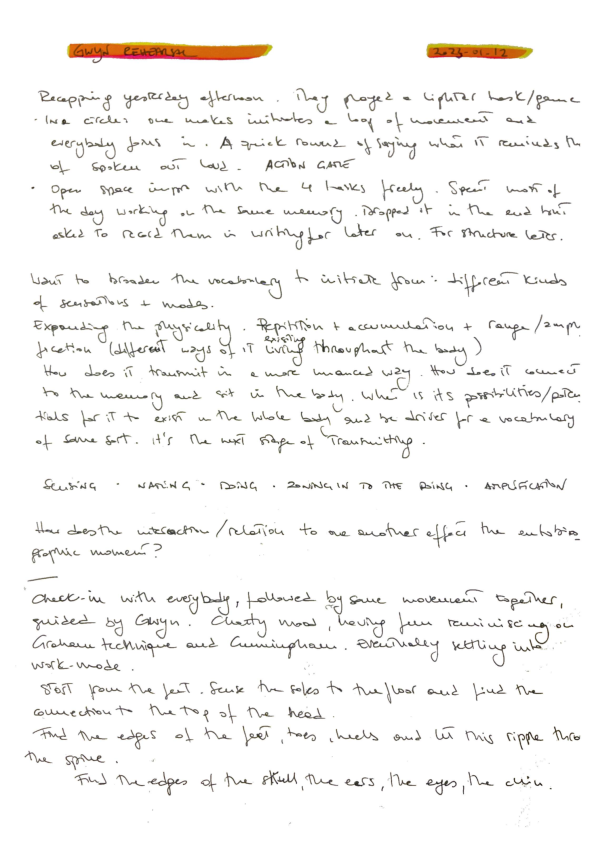 GWYN REHEARSAL 2023-01-12
Recapping yesterday afternoon. They played a lighter task/game
· In a circle: one makes initiates a loop of movement and
everybody joins in. A quick round of saying what it reminds th
of spoken out loud. ACTION GAME
· Open space impr with the 4 tasks freely. Spent most of
the day working on the same memory. Dropped it in the end but
asked to record them in writing for later on. For structure later.
Want to broaden the vocabulary to initiate from: different kinds
of sensations + modes.
Expanding the physicality. Repitition + accumulation + range/ampli
fication (different ways of it living existing throughout the body)
How does it transmit in a more nuanced way. How does it connect
to the memory and sit in the body. What is its possibilities/poten
tials for it to exist in the whole body and be driver for a vocabulary
of some sort. it's the next stage of Transmitting.
SENSING · NAMING · DOING · ZONING IN TO THE DOING · AMPLIFICATION
How does the interaction/relation to one another effect the autobio
graphic moment?
Check-in with everybody, followed by some movement together,
guided by Gwyn. Chatty mood, having fun reminiscing on
Graham technique and Cunningham. Eventually settling into
work-mode.
Start from the feet. Sense the soles to the floor and find the
connection to the top of the head.
Find the edges of the feet, toes, heels and let this ripple thro
the spine.
Find the edges of the skull, the ears, the eyes, the chin.